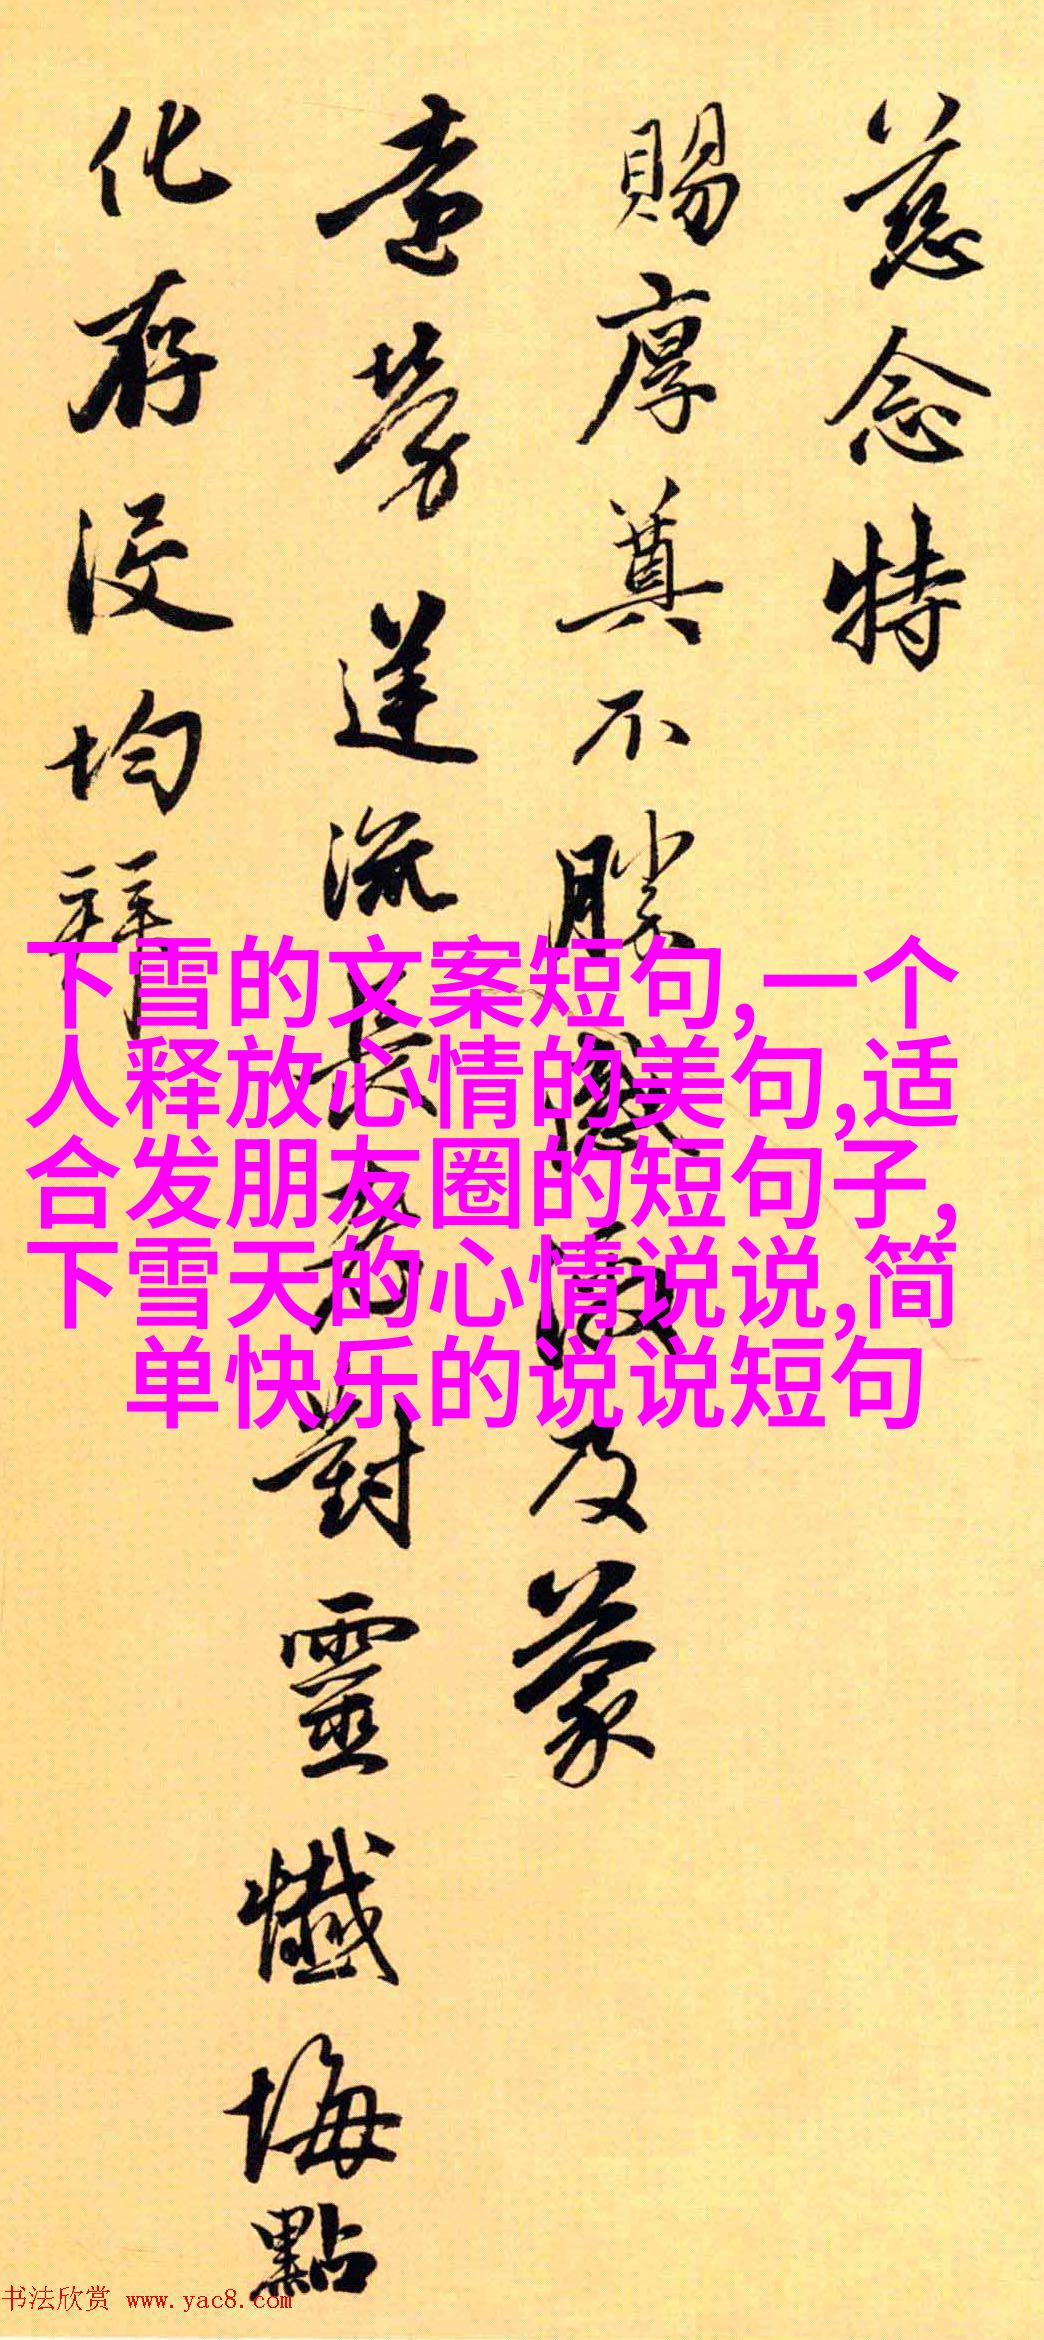 慈念特
賜厚奠不勝感激及蒙
遠勞送流長老對靈懺悔點
化存没均
下雪的文案短句,一个
人释放心情的美句,适
合发朋友圈的短句子,
下雪天的心情说说,简
单快乐的说说短句
书法欣赏 www.yac8.com